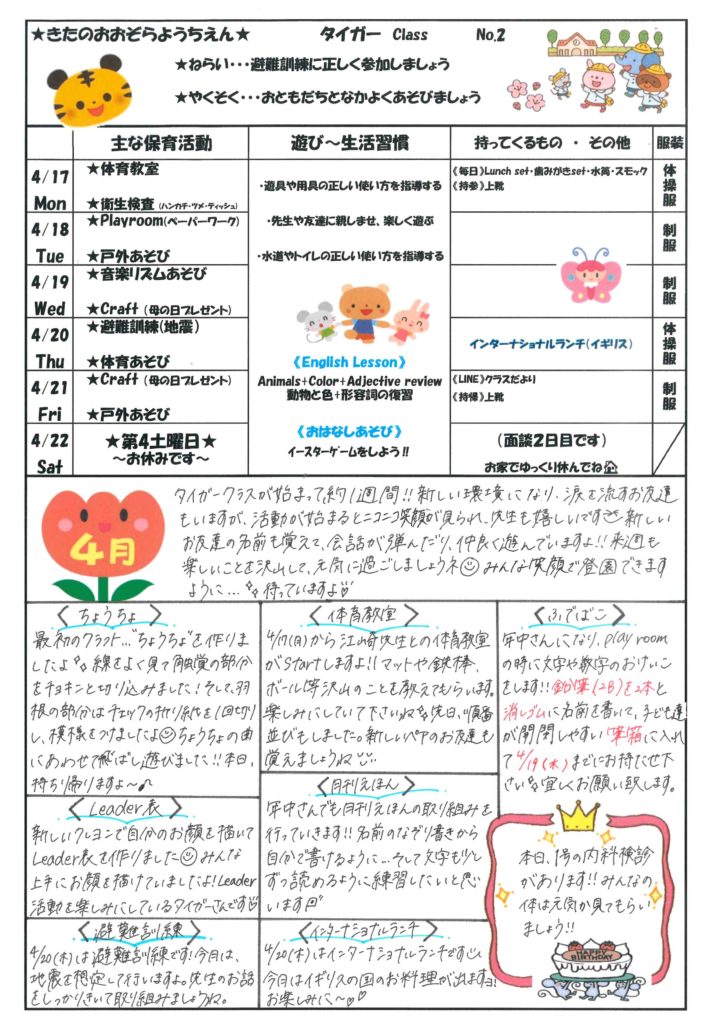 ★きたのおおぞらようちえん★ タイガー Class No.2
★ねらい・・・避難訓練に正しく参加しましょう
★やくそく・・・おともだちとなかよくあそびましょう
主な保育活動 遊び～生活習慣 持ってくるもの ・ その他 服装
4/17 Mon
★体育教室
★衛生検査 (ハンカチ・ツメ・ティッシュ)
《毎日》Lunch set・歯みがきset・水筒・スモック
《持参》上靴
体操服
4/18 Tue
★Playroom(ペーパーワーク)
★戸外あそび
制服
4/19 Wed
★音楽リズムあそび
★Craft (母の日プレゼント)
制服
4/20 Thu
★避難訓練(地震)
★体育あそび
インターナショナルランチ(イギリス)
体操服
4/21 Fri
★Craft (母の日プレゼント)
★戸外あそび
《LINE》クラスだより
《持帰》上靴
制服
4/22 Sat
★第4土曜日★
～お休みです～
(面談2日目です)
お家でゆっくり休んでね
・遊具や用具の正しい使い方を指導する
・先生や友達に親しませ、楽しく遊ぶ
・水道やトイレの正しい使い方を指導する
《English Lesson》
Animals+Color+Adjective review
動物と色+形容詞の復習
《おはなしあそび》
イースターゲームをしよう!!
4月
タイガークラスが始まって約1週間!!新しい環境になり、涙を流すお友達
もいますが、活動が始まるとニコニコ笑顔が見られ、先生も嬉しいです 新しい
お友達の名前も覚えて、会話が弾んだり、仲良く遊んでいますよ!!来週も
楽しいことを沢山して、元気に過ごしましょうネ みんな笑顔で登園できます
ように… 待っていますよ
〈ちょうちょ〉
最初のクラフト…"ちょうちょ"を作りま
したよ 線をよく見て触覚の部分
をチョキンと切り込みました!そして、羽
根の部分はチェックの折り紙を1回切り
し、模様をつけましたよ ちょうちょの曲
にあわせて飛ばし遊びました!!本日、
持ち帰りますよ～♪
〈Leader表〉
新しいクレヨンで自分のお顔を描いて
Leader表を作りました みんな
上手にお顔を描けていましたよ!Leader
活動を楽しみにしているタイガーさんです
〈避難訓練〉
4/20(木)は避難訓練です!今月は、
地震を想定して行いますよ。先生のお話
をしっかりきいて取り組みましょうね。
〈体育教室〉
4/17(月)から江崎先生との体育教室
がStartしますよ!!マットや鉄棒、
ボール等沢山のことを教えてもらいます。
楽しみにしていて下さいね 先日、順番
並びもしました。新しいペアのお友達も
覚えましょうね
〈月刊えほん〉
年中さんでも月刊えほんの取り組みを
行っていきます!!名前のなぞり書きから
自分で書けるように…そして文字も少し
ずつ読めるように練習したいと思
います
〈インターナショナルランチ〉
4/20(木)はインターナショナルランチです
今月はイギリスの国のお料理が出ますヨ!
お楽しみに～
〈ふでばこ〉
年中さんになり、play room
の時に文字や数字のおけいこ
をします!!鉛筆(2B)を2本と
消しゴムに名前を書いて、子ども達
が開閉しやすい筆箱に入れ
て4/19(水)までにお持たせ下
さい 宜しくお願い致します。
本日、1号の内科検診
があります!!みんなの
体は元気か見てもらい
ましょう!!
HAPPY BIRTHDAY